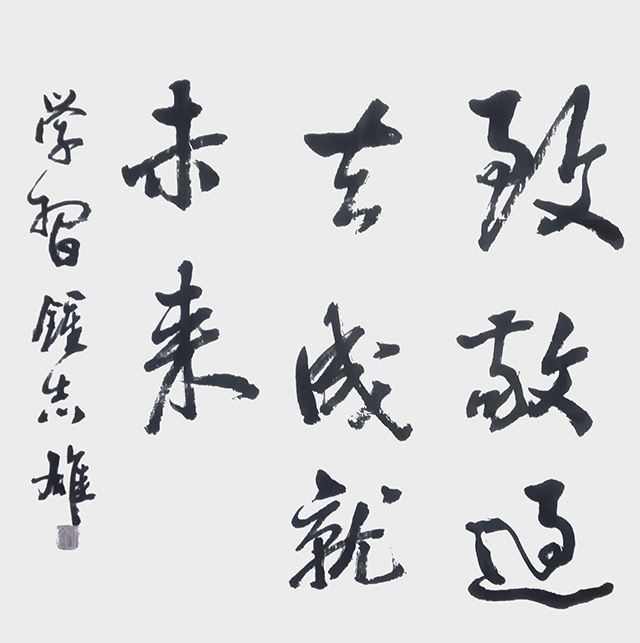 致敬过
去成就
未来
学習鍾志雄